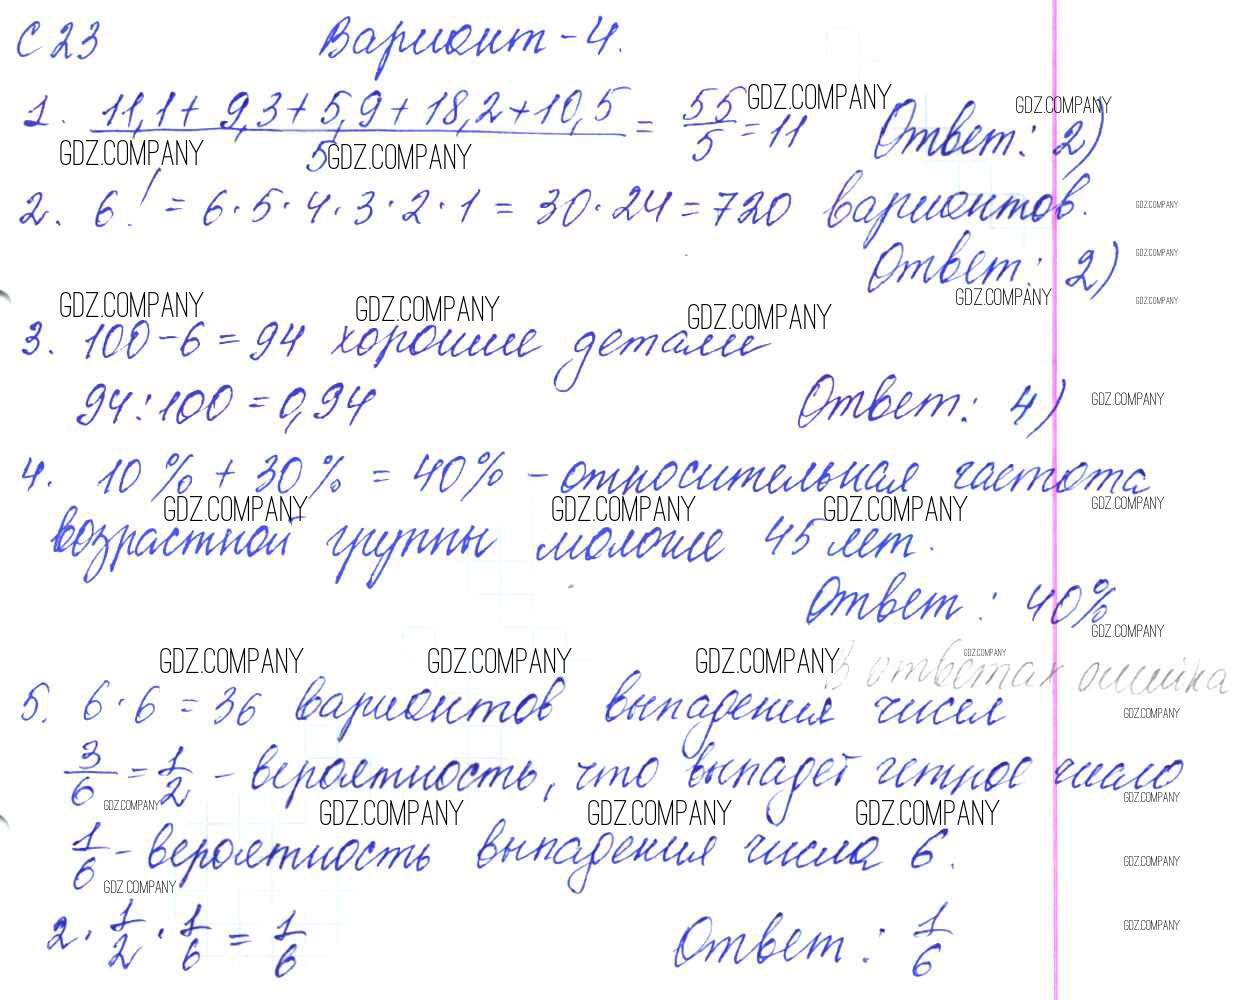 С 23 Вариант - 4.
1. (11,1 + 9,3 + 5,9 + 18,2 + 10,5)/5 = 55/5 = 11 Ответ: 2)
2. 6! = 6 · 5 · 4 · 3 · 2 · 1 = 30 · 24 = 720 вариантов.
Ответ: 2)
3. 100 - 6 = 94 хорошие детали
94 : 100 = 0,94 Ответ: 4)
4. 10 % + 30 % = 40 % - относительная частота
возрастной группы моложе 45 лет.
Ответ: 40%
В ответах ошибка
5. 6 · 6 = 36 вариантов выпадения чисел
3/6 = 1/2 - вероятность, что выпадет четное число
1/6 - вероятность выпадения числа 6.
2 · 1/2 · 1/6 = 1/6 Ответ: 1/6
GDZ.COMPANY